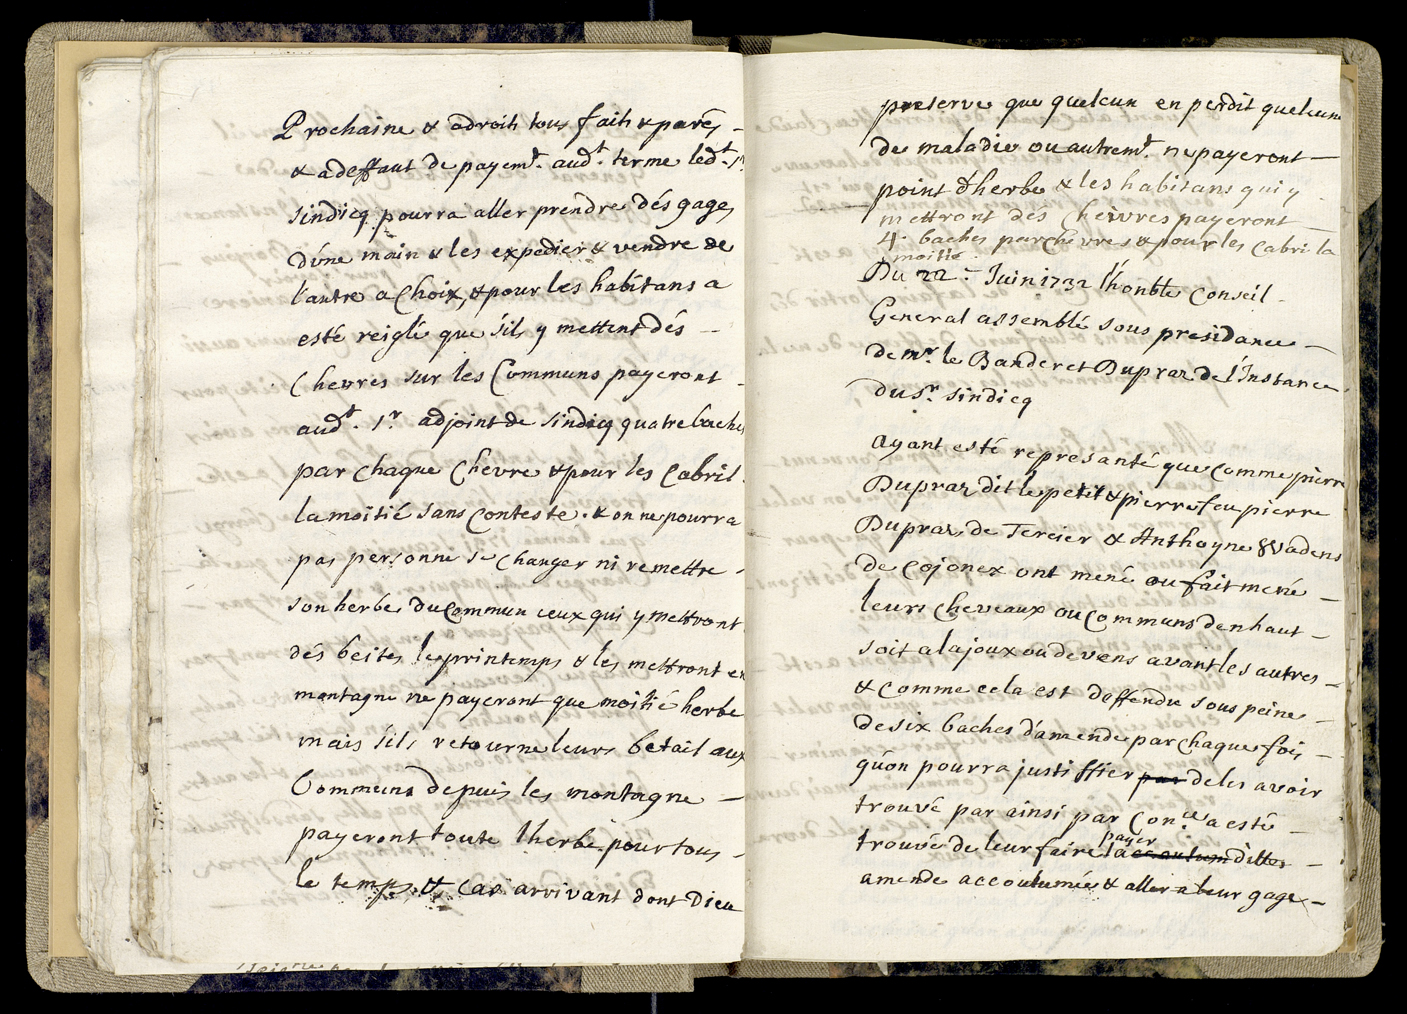 Prochaine & adroits tous faits & parés -
& adeffaut de payemt. audt. terme ledt. sr
sindicq pourra aller prendre dés gages
d'une main & les expedier & vendre de
l'autre a Choix, & pour les habitans a
esté reiglé que s'ils y mettent dés --
Chevres sur les Communs payeront -
audt. sr adjoint de sindicq quatre baches
par chaque Chevre & pour les Cabril
la moitié sans Conteste. & on ne pourra
pas personne se Changer ni remettre -
son herbe du Commun ceux qui y mettront
dés beites le printemps & les mettront en
montagne ne payeront que moitié herbe
mais s'ils retourne leurs betail aux
Communs depuis les montagne -
payeront toute l'herbe pour tous -
le temps. & cas arrivant dont Dieu
preserve que quelcun en perdit quelcune
de maladie ou autremt. ne payeront -
point d'herbe & les habitans qui y
mettront dés Cheivres payeront
4. baches par Chevres & pour les Cabri la
moitié.
Du 22e. Juin 1732 l'honble Conseil -
General assemblé sous presidance -
de mr. le Banderet Dupraz de l'Instance
du sr. sindicq
Ayant esté representé que comme pierre
Dupraz dit le petit & pierre feu pierre
Dupraz de Tercier & Anthoyne Wadens
de Cojonex ont mené ou fait mené -
leurs Cheveaux ou Communs denhaut -
soit a la joux ou devens avant les autres -
& comme cela est deffendu sous peine -
de six baches d'amende par chaque fois -
qu'on pourra justiffier par de les avoir
trouvé par ainsi par Conce a esté -
trouvé de leur faire payer la accoutum ditte -
amende accoutumée & aller a leur gage -